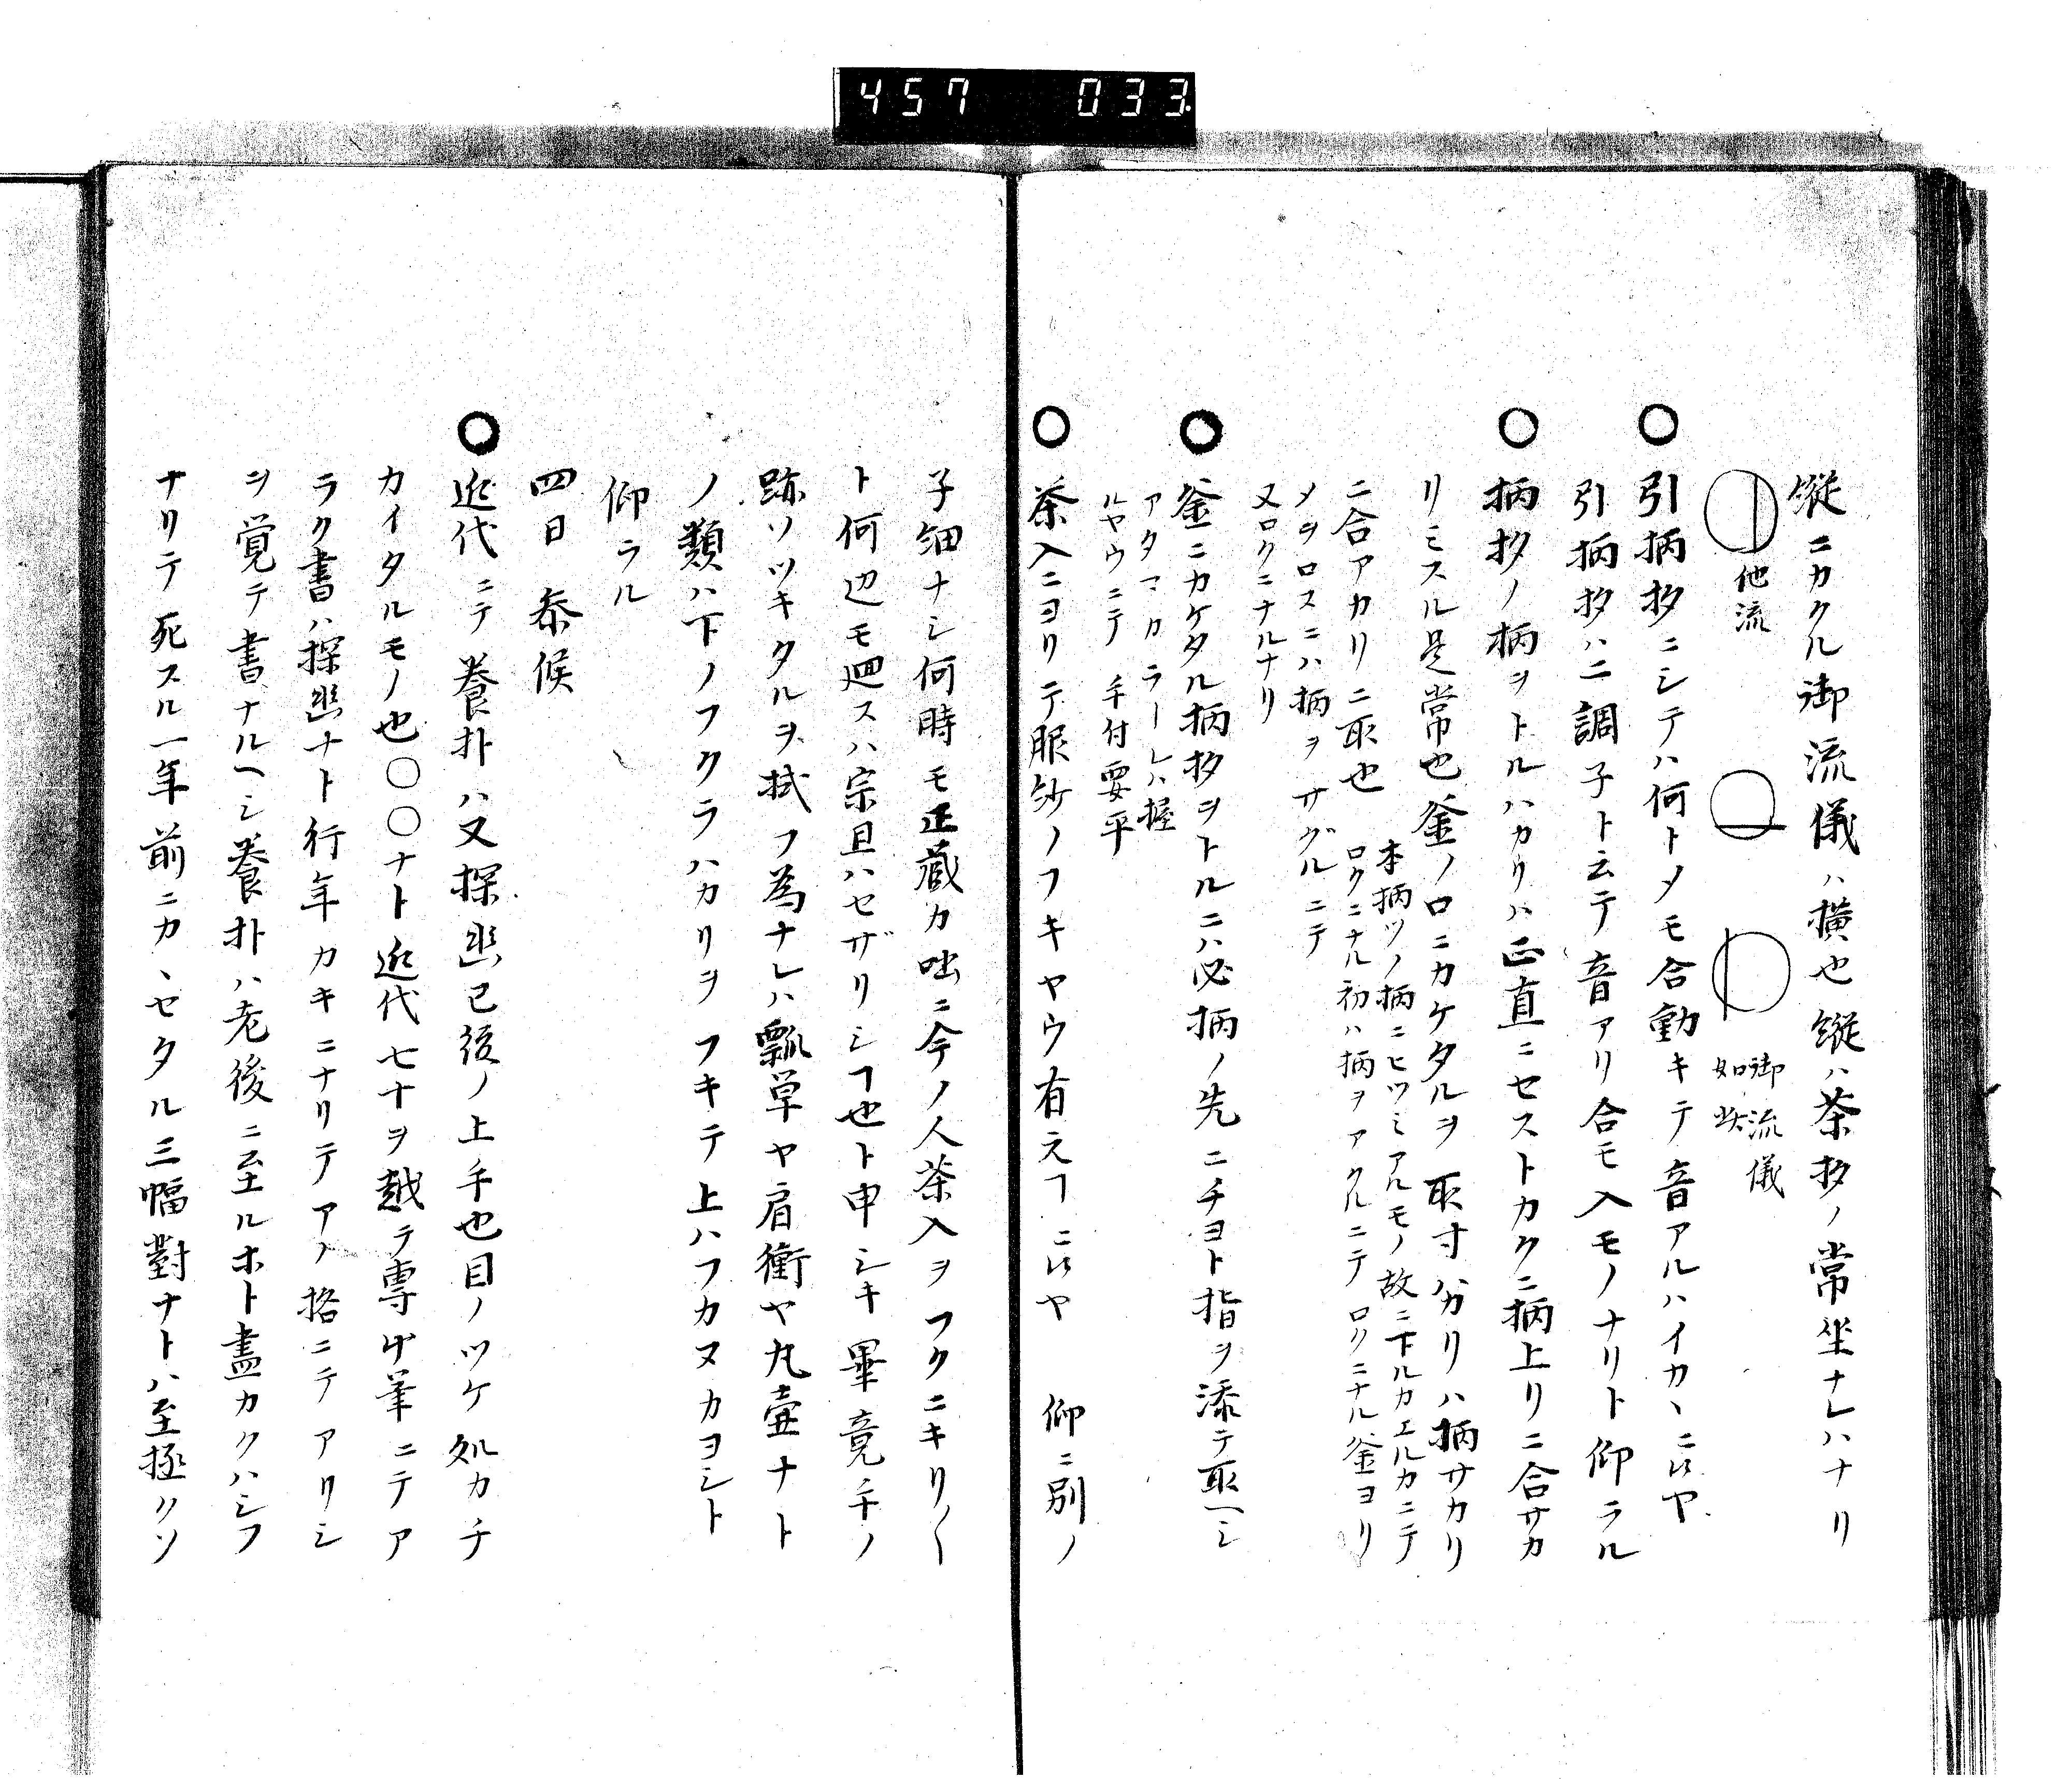 457 033
縦ニカクル御流儀ハ横也縦ハ茶杓ノ常坐ナレハナリ
他流
御流儀
如此
○引柄杓ニシテハ何トメモ合動キテ音アルハイカヽニ候ヤ
引柄杓ハ二調子ト云テ音アリ合モ入モノナリト仰ラル
○柄杓ノ柄ヲトルハカリハ正直ニセストカクニ柄上リニ合サカ
リミスル是常也釜ノ口ニカケタルヲ取寸ハカリハ柄サカリ
ニ合アカリニ取也
本柄ツノ柄ニヒツミアルモノ故ニ下ルカエルカニテ
ロクニナル初ハ柄ヲアクルニテロクニナル釜ヨリ
メヲロスニハ柄ヲサグルニテ
又ロクニナルナリ
○釜ニカケタル柄杓ヲトルニハ必柄ノ先ニチヨト指ヲ添テ取ヘシ
アタマカラーレハ握
ルヤウニテ手付要平
○茶入ニヨリテ服紗ノフキヤウ有之ヿニ候ヤ 仰ニ別ノ
子細ナシ何時モ正蔵カ咄ニ今ノ人茶入ヲフクニキリ〱
ト何辺モ廻スハ宗旦ハセザリシヿ也ト申シキ畢竟手ノ
跡ソツキタルヲ拭フ為ナレハ瓢草ヤ肩衝ヤ丸壷ナト
ノ類ハ下ノフクラハカリヲフキテ上ハフカヌカヨシト
仰ラル
四日 参候
○近代ニテ養朴ハ又探幽已後ノ上手也目ノツケ処カチ
カイタルモノ也〇〇ナト近代七十ヲ越テ専ヤ筆ニテア
ラク書ハ探幽ナト行年カキニナリテアノ格ニテアリシ
ヲ覚テ書ナルヘシ養朴ハ老後ニ至ルホト畫カクハシフ
ナリテ死スル一年前ニカヽセタル三幅對ナトハ至極クソ